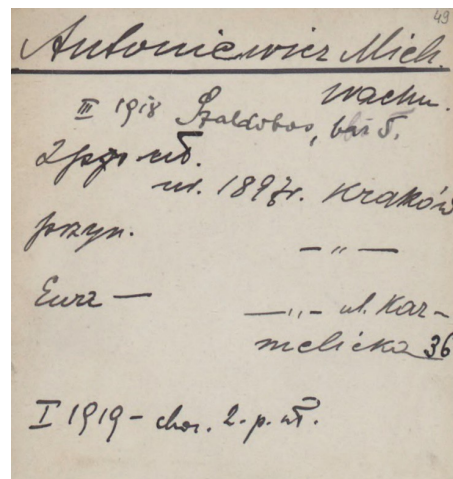 49
Antoniewicz Mich.
wachm.
III 1918 Szaldobos, bat. 5.
2 ppo uł.
ur. 1897r. Kraków
przyn. —„—
Ewa — —„— ul. Kar-
melicka 36
I 1919 - chor. 2. p. uł.